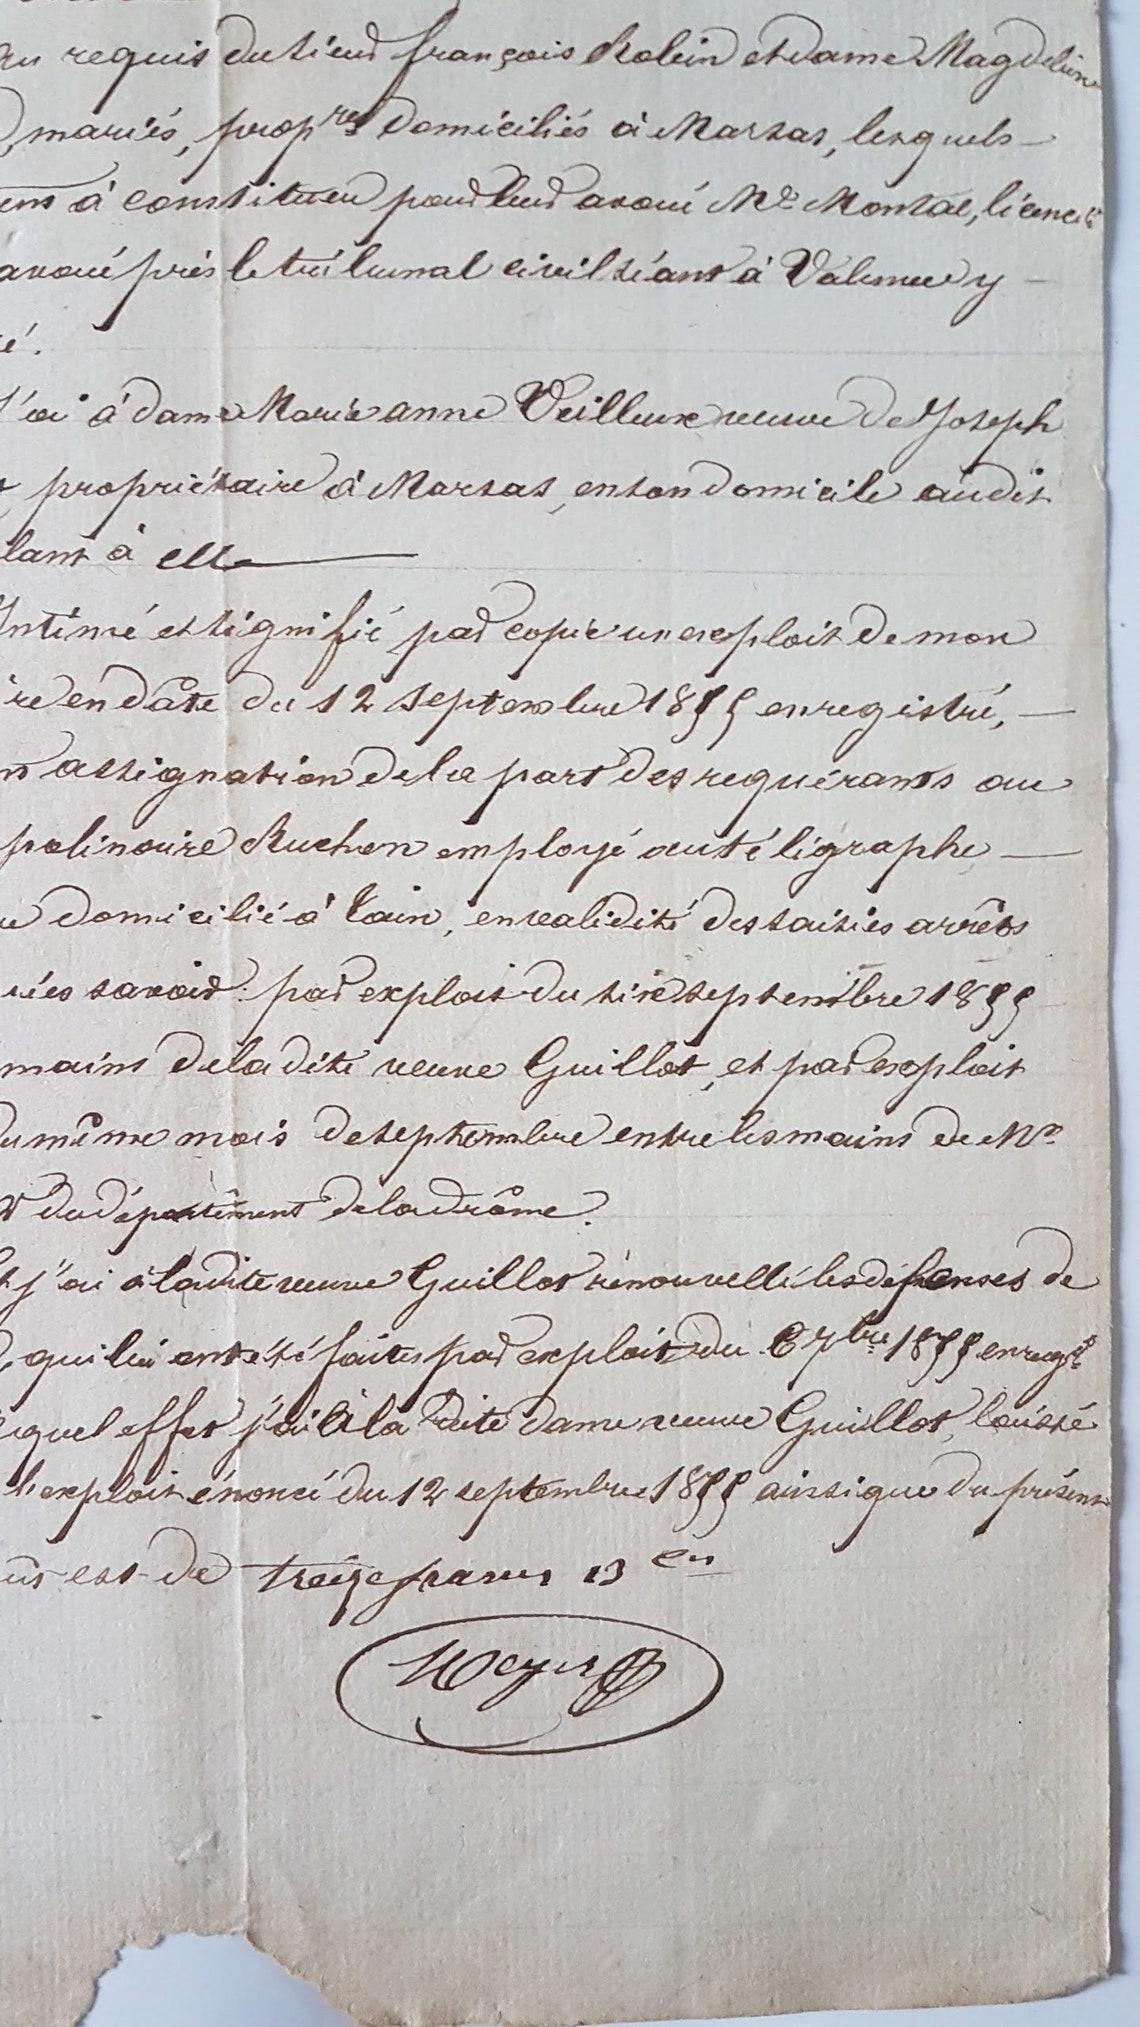 au requis du sieur françois Robin et dame Magdeleine
mariés, prop.res domiciliés à Marsas, lesquels
à constituer pour leur avoué Me Montal, licencié
avoué près le tribunal civil séant à Valence y
é.
j'ai à dame Marie anne Veilleux veuve de Joseph
propriétaire à Marsas, en son domicile audit
lant à elle
Intimé et signifié par copie un exploit de mon
re en date du 12 septembre 1855 enregistré,
assignation de la part des requérants au
polinaire Ruchon employé au téligraphe,
domicilié à Tain, en validité des saisies arrêts
ées savoir: par exploit du six septembre 1855
mains de la dite veuve Guillot, et par exploit
du même mois de septembre entre les mains de Mr
du département de la drôme.
j'ai à la dite veuve Guillot rénouvellé les défenses de
qui lui ont été faites par exploit du 6 7bre 1855 enregé
quel effet j'ai à la dite dame veuve Guillot, laissé
l'exploit énoncé du 12 septembre 1855 ainsi que du présent
est de treize francs 13 cen